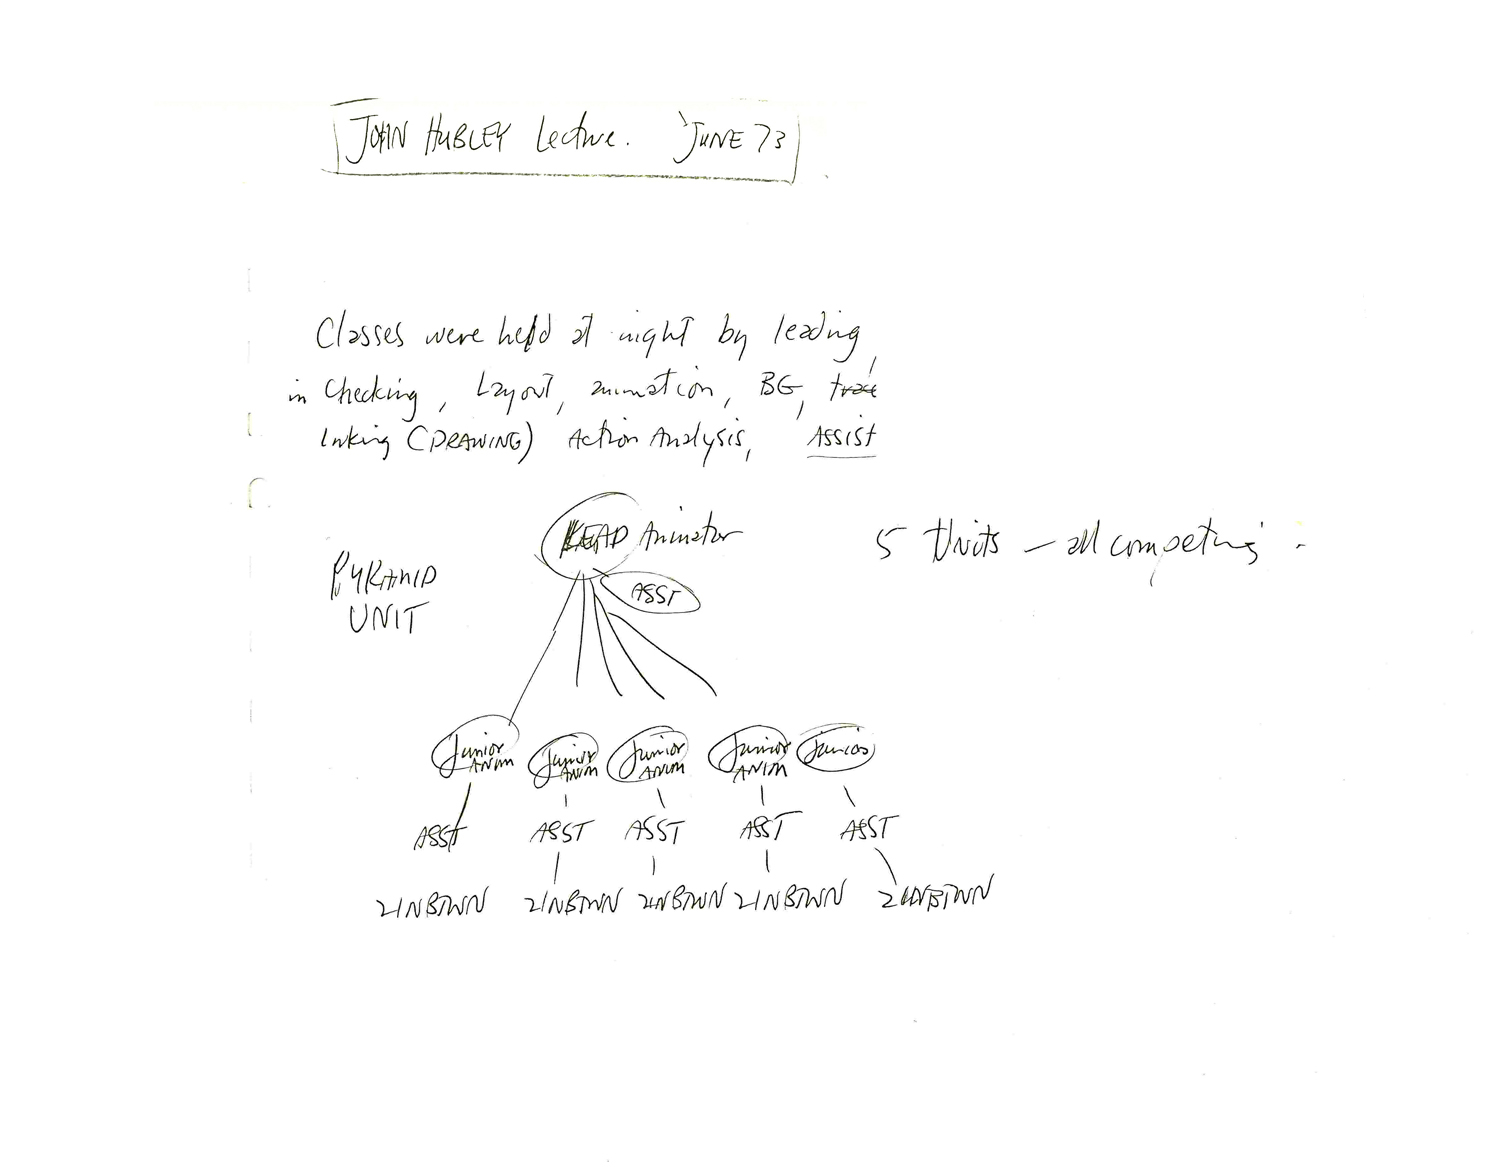 JOHN HUBLEY Lecture. JUNE 73
Classes were held at night by leading,
in checking, Layout, animation, BG, trace
Inking (DRAWING) Action Analysis, ASSIST
LEAD Animator
5 Units — all competing.
PYRAMID
UNIT
ASST
Junior ANIM Junior ANIM Junior ANIM Junior ANIM Junior
ASST ASST ASST ASST ASST
2 INBTWN 2 INBTWN 2 INBTWN 2 INBTWN 2 INBTWN